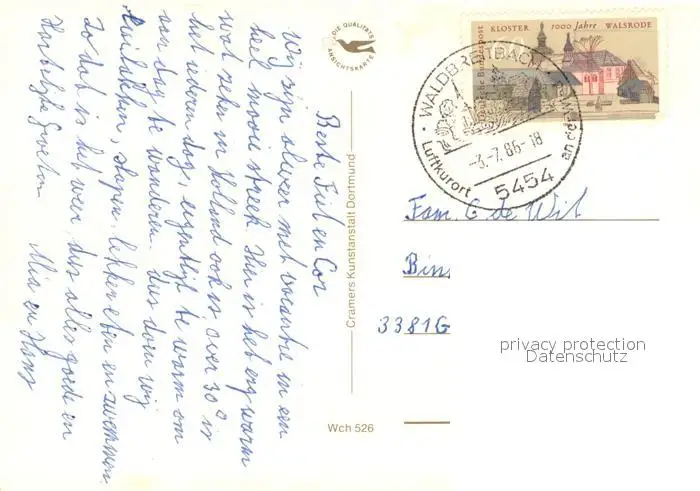 Beste Fiet en Cor
Wij zijn alweer met vacantie in een
heel mooie streek. Hier is het erg warm
wat zeker in Holland ook is, over 30° is
het iederen dag, eigenlijk te warm om
van dag te wanderen. dus doen wij
uitslapen, lekker eten en zwemmen
Zo dat is het weer dus alles goeds en
Hartelijke Groeten Mia en Hans
DIE QUALITÄTS
ANSICHTSKARTE
Cramers Kunstanstalt Dortmund
Wch 526
KLOSTER 1000 Jahre WALSRODE
Deutsche Bundespost
WALDBREITBACH
an der Wied
-3.-7.86-18
Luftkurort
5454
Fam. C de Wit
Bin.
3381G
privacy protection
Datenschutz